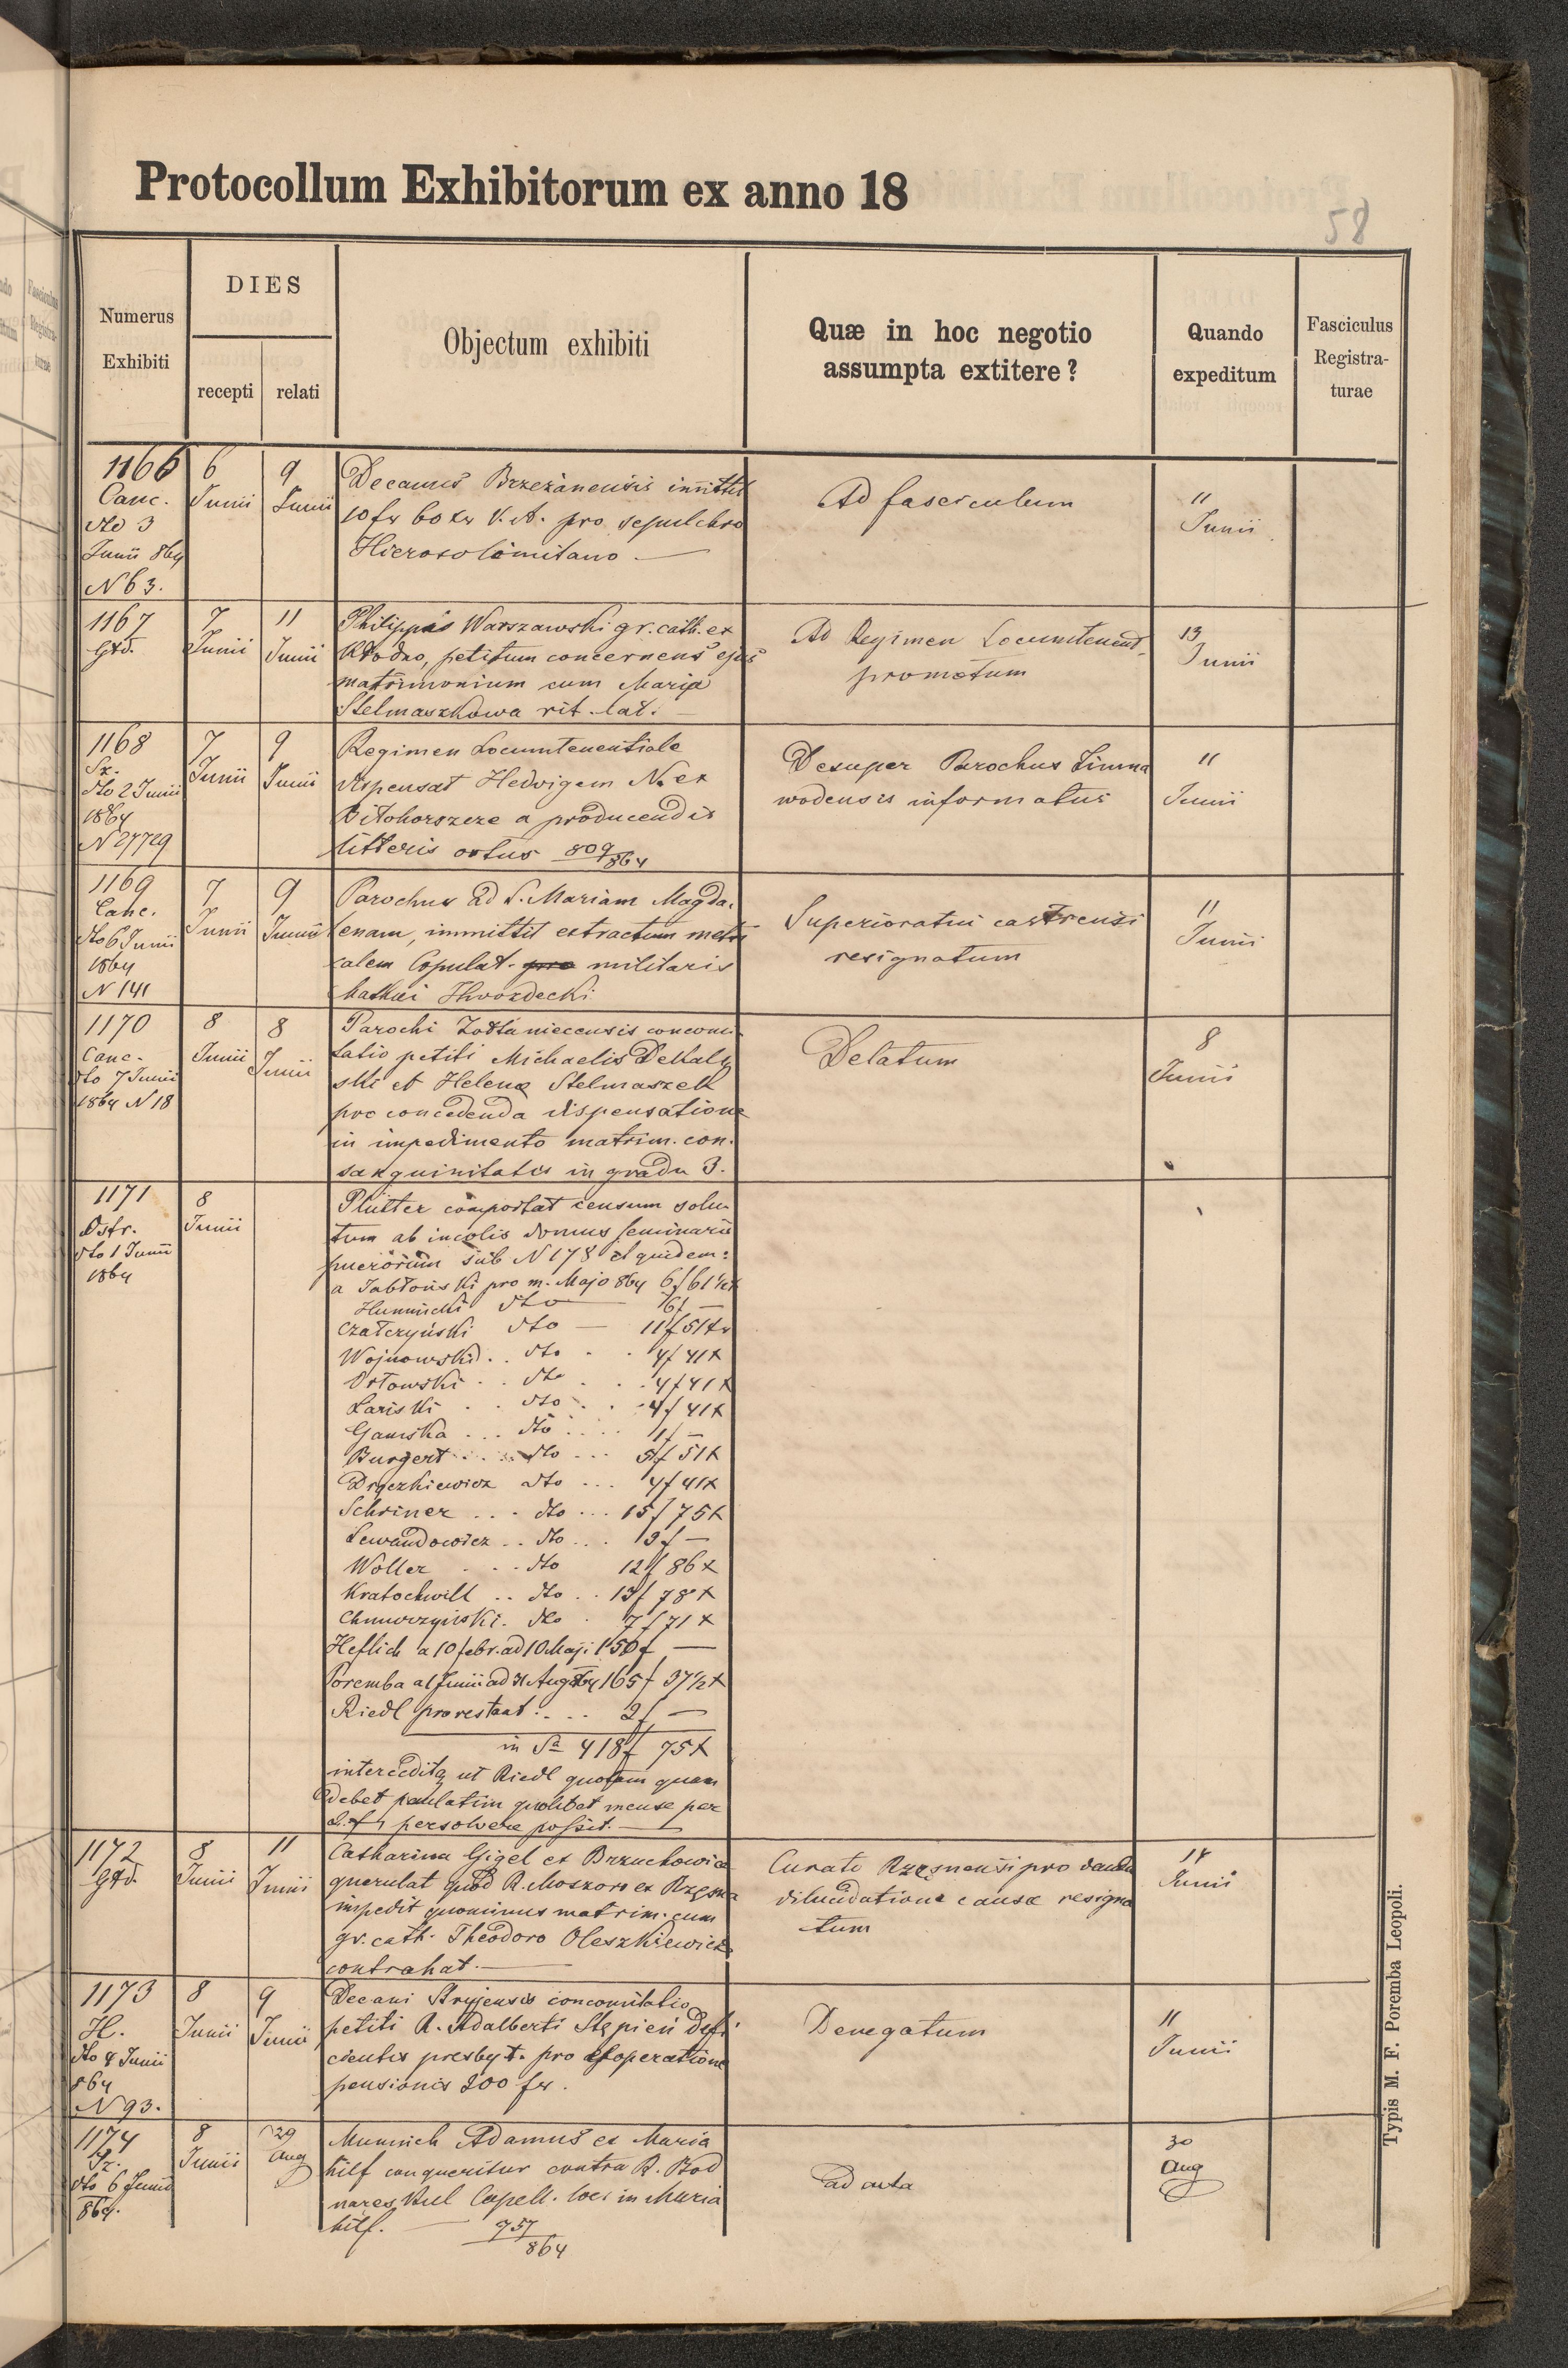 Protocollum Exhibitorum ex anno 18
58
Numerus Exhibiti
DIES
recepti
relati
Objectum exhibiti
Quæ in hoc negotio assumpta extitere?
Quando expeditum
Fasciculus Registra-turae
1166
Canc.
dto 3
Junii 864
N 63.
6
Junii
9
Junii
Decanus Brzezanensis im̃ittit
10 fr 60 xr V. A. pro sepulchro
Hierosolimitano —
Ad fasciculum
11
Junii
1167
Gtd.
7
Junii
11
Junii
Philippus Warszawski gr. cath. ex
Kłodno, petitum concernens ejus
matrimonium cum Maria
Stelmaszkowa rit. lat. —
Ad Regimen Locumtenent.
promotum
13
Junii
1168
Sz.
dto 2 Junii
1864
N 27729
7
Junii
9
Junii
Regimen Locumtenentiale
dispensat Hedvigem N. ex
Bitohorszcze a producendis
litteris ortus 809/864
Desuper Parochus Zimna
wodensis informatus
11
Junii
1169
Canc.
dto 6 Junii
1864
N 141
7
Junii
9
Junii
Parochus ad S. Mariam Magda-
lenam, immittit extractum metri
calem Copulat. pro militaris
Hvozdecki
Superioratui castrensi
resignatum
11
Junii
1170
Canc.
dto 7 Junii
1864 N 18
8
Junii
8
Junii
Parochi Żołtaniecensis concomi-
tatio petiti Michaelis Dekal
ski et Helenæ Stelmaszek
pro concedenda dispensatione
in impedimento matrim. con-
sanguinitatis in gradu 3.
Delatum
8
Junii
1171
Ostr.
dto 1 Junii
1864
8
Junii
Plutter comportat censum solu-
tum ab incolis domus seminarii
puerorum sub N 178 et quidem:
a Jabłoński pro m. Majo 864 6 f 61 1/2 x
Humnicki dto — 6 f —
Czałczyński dto — 11 f 51 xr
Wojnowski .. dto . . 4 f 41 x
Orłowski . . dto . . 4 f 41 x
Lariski . . dto . . 4 f 41 x
Gamska ... dto .... 1 f —
Burgert .... dto ... 5 f 51 x
Drączkiewicz dto ... 4 f 41 x
Schriner ... dto ... 15 f 75 x
Lewandowicz .. dto ... 3 f —
Woller ... dto 12 f 86 x
Kratochwill .. dto .. 13 f 78 x
Chmurzyński . dto . 7 f 71 x
Heflich a 10 febr. ad 10 Maji 150 f —
Poremba a 1 Junii ad 31 Aug 864 165 f 37 1/2 x
Riedl pro restant .... 2 f —
in Sa 418 f 75 x
interceditq ut Riedl quotam quam
debet paulatim quolibet mense per
2 f persolvere possit. —
1172
Gtd.
8
Junii
11
Junii
Catharina Gigel ex Brzuchowice
querulat quod R. Moszoro ex Rzęsna
impedit quominus matrim. cum
gr. cath. Theodoro Oleszkiewicz
contrahat. —
Curato Rzęsnensi pro danda
dilucidatione causæ resigna
tum
14
Junii
1173
H.
dto 4 Junii
864
N 93.
8
Junii
9
Junii
Decani Stryjensis concomitatio
petiti R. Adalberti Stępień defi
cientis presbyt. pro
pensionis 200 fr.
Denegatum
11
Junii
1174
Sz.
dto 6 Junii
864.
8
Junii
29
Aug
Mumich Adamus ex Maria
hilf conqueritur contra R. Bod
nares Capell. loci in Maria
hilf. — 757/864
ad acta
30
Aug
Typis M. F. Poremba Leopoli.